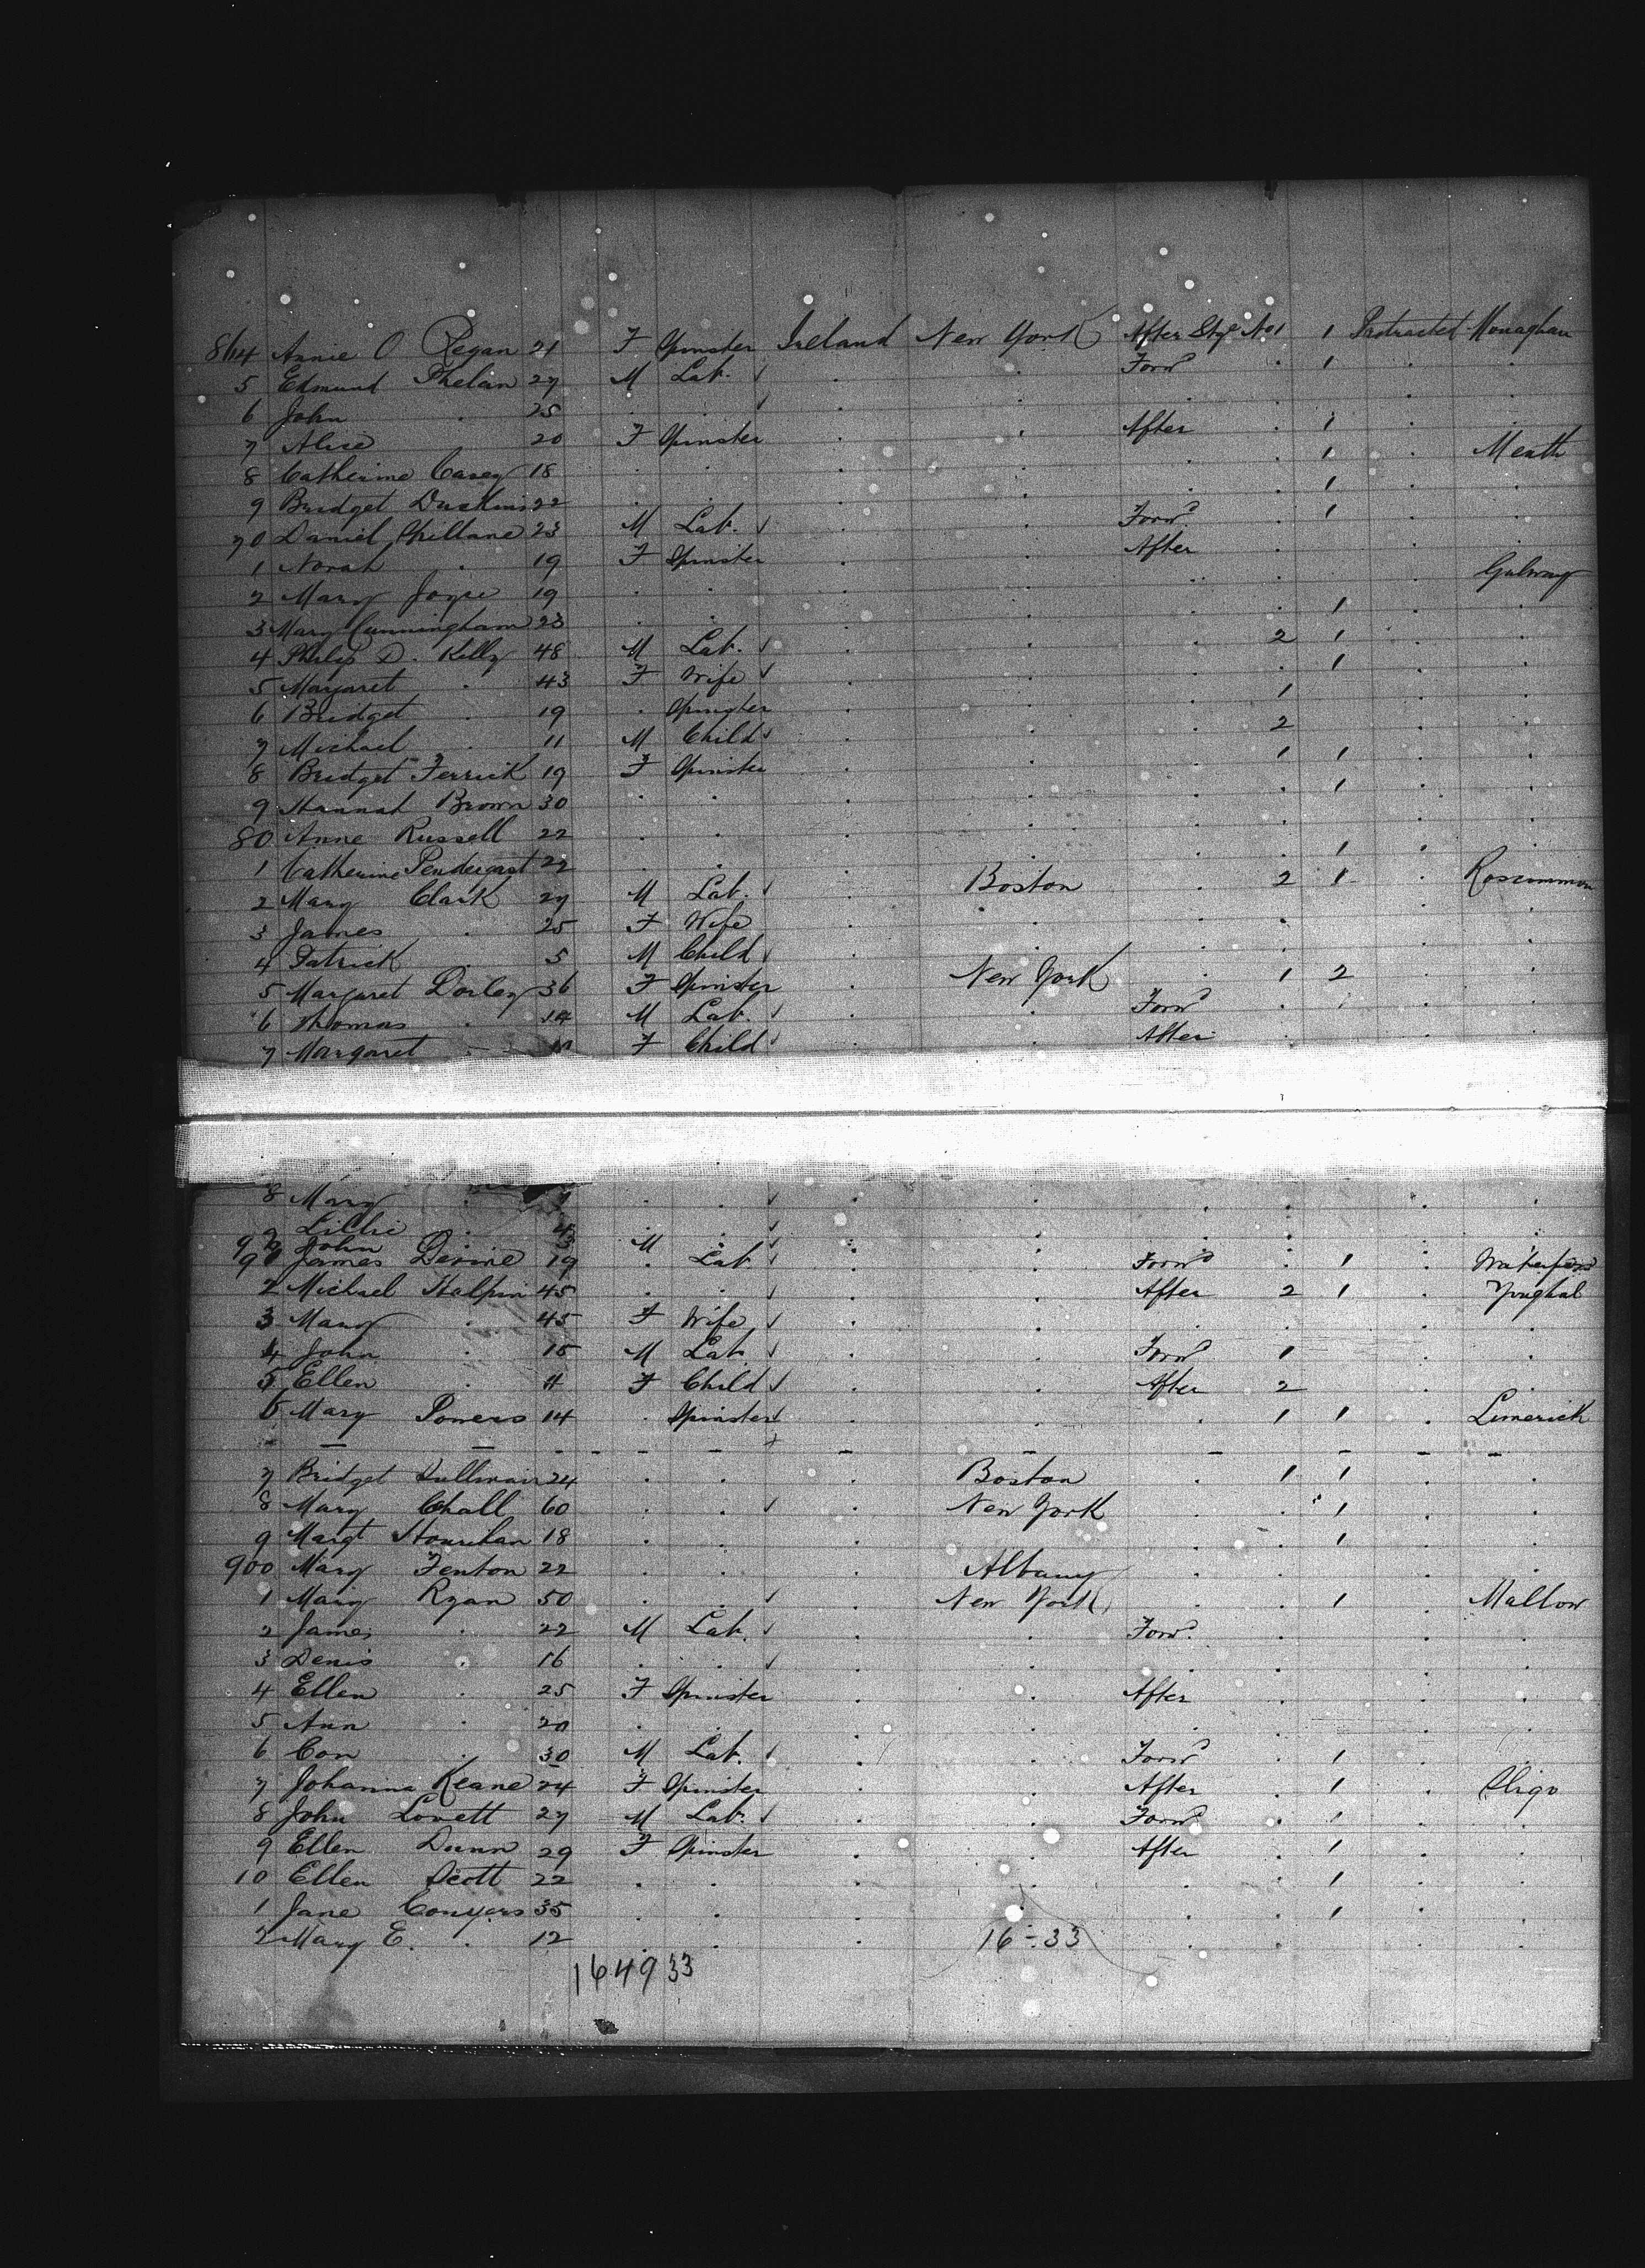 864 Annie O Regan 21 F Spinster Ireland New York After Stge No 1 1 Protracted Monaghan
5 Edmund Phelan 27 M Lab. ✓ . . Forwd . 1 . .
6 John . 25 . . ✓ . . . . . .
7 Alice . 20 F Spinster . . After . 1 . .
8 Catherine Casey 18 . . . . . . 1 . Meath
9 Bridget 22 . . . . . . 1 . .
70 Daniel Spillane 23 M Lab. ✓ . . Forwd . 1 . .
1 Norah . 19 F Spinster . . After . . .
2 Mary Joyce 19 . . . . . . . Galway
3 Mary Cunningham 23 . . . . . . 1 . .
4 Philip D. Kelly 48 M Lab. ✓ . . . 2 1 . .
5 Margaret . 43 F Wife ✓ . . . . 1 . .
6 Bridget . 19 . Spinster . . . 1 . .
7 Michael . 11 M Child ✓ . . . 2 . .
8 Bridget Ferrick 19 F Spinster . . . 1 1 . .
9 Hannah Brown 30 . . . . . . 1 . .
80 Anne Russell 22 . . . . . . . .
1 Catherine Pendergast 22 . . . . . . 1 . .
2 Mary Clark 27 M Lab. ✓ . Boston . 2 1 . Roscommon
3 James . 25 F Wife . . . . . .
4 Patrick . 5 M Child ✓ . . . . . .
5 Margaret Dorley 36 F Spinster . New York . 1 2 . .
6 Thomas . 14 M Lab. ✓ . . Forwd . . .
7 Margaret . F Child ✓ . . After . . .
8 Mary . . . ✓ . . . . . .
9 Lillie . 4 . . ✓ . . . . . .
90 John . 3 M . ✓ . . . . . .
91 James Devine 19 . Lab ✓ . . Forwd . 1 . Waterford
2 Michael Halpin 45 . . ✓ . . After 2 1 . Youghal
3 Mary . 45 F Wife ✓ . . . . . .
4 John . 15 M Lab ✓ . . Forwd 1 . .
5 Ellen . 11 F Child ✓ . . After 2 . .
6 Mary Powers 14 . Spinster ✓ . . . 1 1 . Limerick
- - - - - - - + - - - - - -
7 Bridget 24 . . . Boston . 1 1 . .
8 Mary 60 . . ✓ . New York . . 1 . .
9 Margt Hourihan 18 . . . . . . 1 . .
900 Mary Fenton 22 . . . Albany . . . .
1 Mary Ryan 50 . . ✓ . New York . . 1 . Mallow
2 James . 22 M Lab. ✓ . . Forwd . . .
3 Denis . 16 . . ✓ . . . . . .
4 Ellen . 25 F Spinster . . After . . .
5 Ann . 20 . . . . . . . .
6 Con . 30 M Lab. ✓ . . Forwd . 1 . .
7 Johanna Keane 24 F Spinster . . After . 1 . Sligo
8 John Lovett 27 M Lab. ✓ . . Forwd . 1 . .
9 Ellen Dunn 29 F Spinster . . After . 1 . .
10 Ellen Scott 22 . . . . . . 1 . .
1 Jane Conyers 35 . . . . . . 1 . .
2 Mary E. . 12 . . . 16-33 . . . .
164933